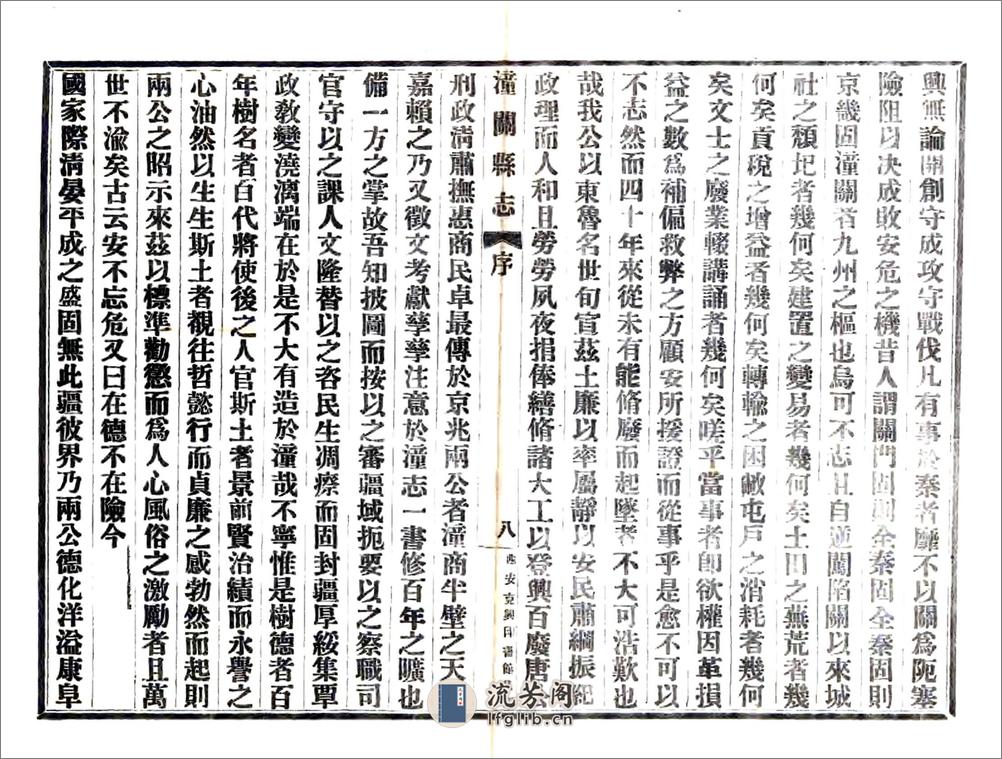 興無論關創守成攻守戰伐凡有事於秦者靡不以關爲阨塞
險阻以決成敗安危之機昔人謂關門固則全秦固全秦固則
京畿固潼關者九州之樞也烏可不志且自逆闖陷關以來城
社之頹圯者幾何矣建置之變易者幾何矣土田之蕪荒者幾
何矣貢稅之增益者幾何矣轉輸之困敝屯戸之消耗者幾何
矣文士之廢業輟講誦者幾何矣嗟乎當事者卽欲權因革損
益之數爲補偏救弊之方顧安所援證而從事乎是愈不可以
不志然而四十年來從未有能脩廢而起墜者不大可浩歎也
哉我公以東魯名世旬宣茲土廉以率屬靜以安民肅綱振紀
政理而人和且勞勞夙夜捐俸繕脩諸大工以登興百廢唐公
潼關縣志 序 八 西安克興印書館
刑政淸肅撫惠商民卓最傳於京兆兩公者潼商半壁之天
嘉賴之乃又徵文考獻孳孳注意於潼志一書修百年之曠也
備一方之掌故吾知披圖而按以之審疆域扼要以之察職司
官守以之課人文隆替以之咨民生凋瘵而固封疆厚綏集覃
政敎變澆漓端在於是不大有造於潼哉不寧惟是樹德者百
年樹名者百代將使後之人官斯土者景前賢治績而永譽之
心油然以生生斯土者觀往哲懿行而貞廉之感勃然而起則
兩公之昭示來茲以標準勸懲而爲人心風俗之激勵者且萬
世不渝矣古云安不忘危又曰在德不在險今
國家際淸晏平成之盛固無此疆彼界乃兩公德化洋溢康阜
流芳阁
lfglib.cn